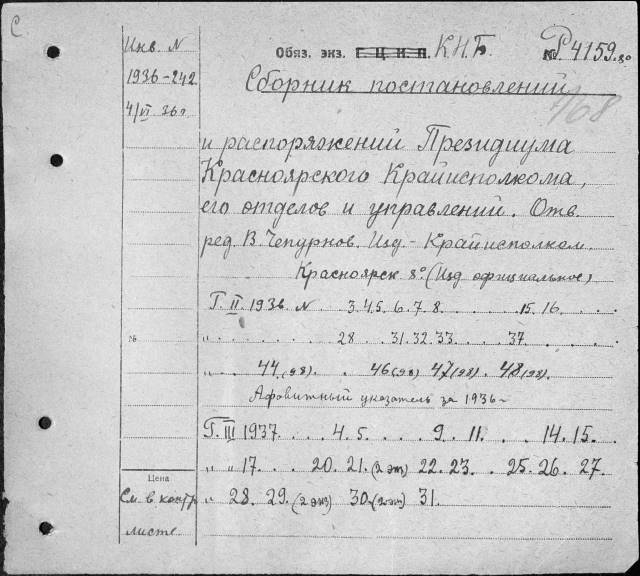 С
Инв. N
1936-242
4/VI 36 г.
Обяз. экз. Г. Ц. К. П. К.Н.Б.
Р4159. 80
Сборник постановлений
и распоряжений Президиума
Красноярского Крайисполкома,
его отделов и управлений. Отв.
ред. В. Чепурнов. Изд. - Крайисполком.
Красноярск 8º. (Изд. официальное)
Г. II. 1936 N 3.4.5. 6. 7. 8. 15. 16.
" 28 31. 32. 33. 37
44 (98) 46 (98) 47 (98) 48 (98).
Афовитный указатель за 1936
Г. III 1937 . 4. 5. 9. 11. 14. 15.
" " 17. 20. 21. (2 экз) 22. 23. 25. 26. 27.
" 28. 29. (2 экз) 30. (2 экз) 31.
Цена
См. в контр
листе